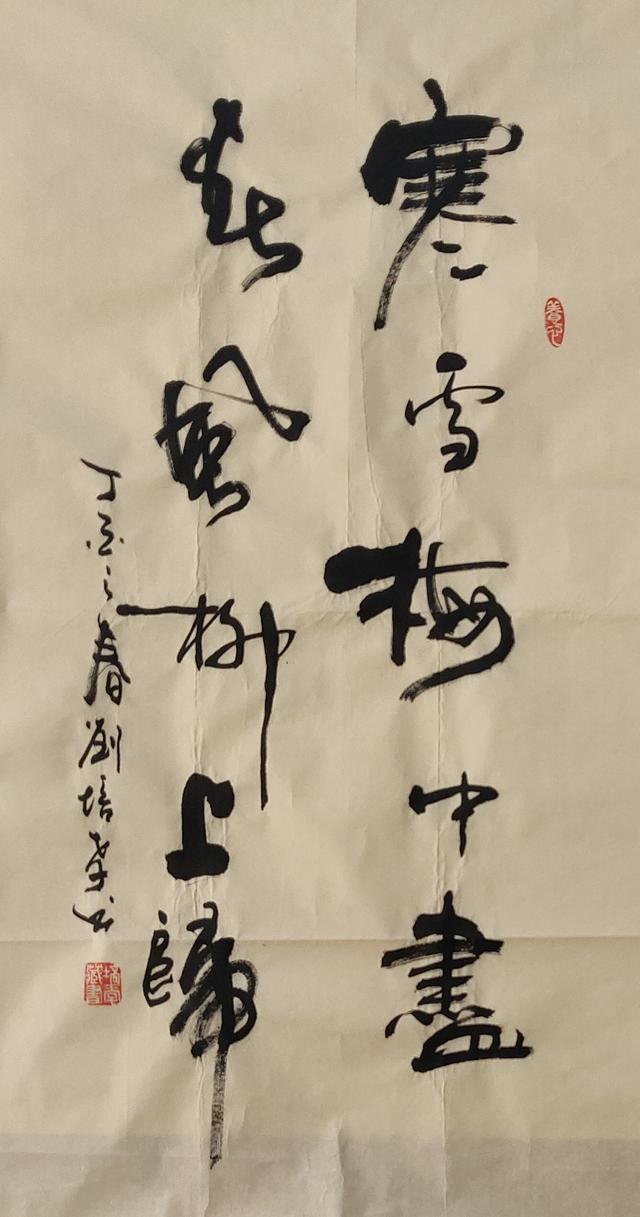 寒雪梅中盡
春風柳上歸
丁酉之春劉培